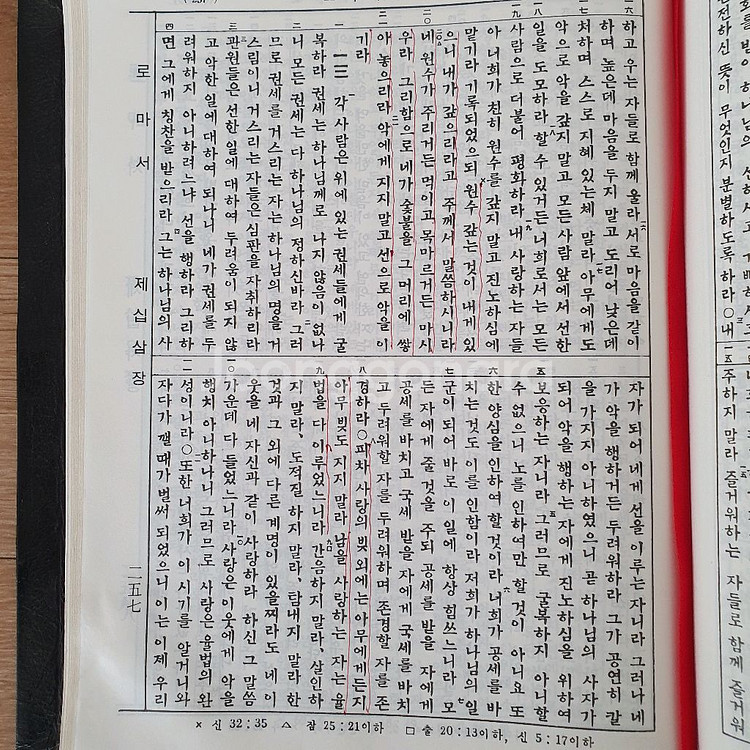 一六 하고 우는 자들로 함께 울라 서로 마음을 같이
하며 높은데 마음을 두지 말고 도리어 낮은데
一七 처하며 스스로 지혜 있는체 말라 아무에게도
악으로 악을 갚지 말고 모든사람 앞에서 선한
一八 일을 도모하라 할 수 있거든 너희로서는 모든
一九 사람으로 더불어 평화하라 내 사랑하는 자들
아 너희가 친히 원수를 갚지 말고 진노하심에
맡기라 기록되었으되 원수 갚는 것이 내게 있
으니 내가 갚으리라고 주께서 말씀하시니라
二〇 네 원수가 주리거든 먹이고 목마르거든 마시
우라 그리함으로 네가 숯불을 그 머리에 쌓
二一 아 놓으리라 악에게 지지 말고 선으로 악을 이
기라
一 一三 각 사람은 위에 있는 권세들에게 굴
복하라 권세는 하나님께로 나지 않음이 없나
二 니 모든 권세는 다 하나님의 정하신바라 그러
므로 권세를 거스리는 자는 하나님의 명을 거
스림이니 거스리는 자들은 심판을 자취하리라
三 관원들은 선한 일에 대하여 두려움이 되지 않
고 악한 일에 대하여 되나니 네가 권세를 두
려워하지 아니하려느냐 선을 행하라 그리하
四 면 그에게 칭찬을 받으리라 그는 하나님의 사
자가 되어 네게 선을 이루는 자니라 그러나 네
가 악을 행하거든 두려워하라 그가 공연히 칼
을 가지지 아니하였으니 곧 하나님의 사자가
되어 악을 행하는 자에게 진노하심을 위하여
五 보응하는 자니라 그러므로 굴복하지 아니할
수 없으니 노를 인하여만 할 것이 아니요 또
六 한 양심을 인하여 할 것이라 너희가 공세를 바
치는 것도 이를 인함이라 저희가 하나님의 일
七 군이 되어 바로 이 일에 항상 힘쓰느니라 모
든 자에게 줄 것을 주되 공세를 받을 자에게
공세를 바치고 국세 받을 자에게 국세를 바치
고 두려워할 자를 두려워하며 존경할 자를 존
八 경하라 ○피차 사랑의 빚 외에는 아무에게든지
아무 빚도 지지 말라 남을 사랑하는 자는 율
九 법을 다 이루었느니라 간음하지 말라, 살인하
지 말라, 도적질 하지 말라, 탐내지 말라 한
것과 그 외에 다른 계명이 있을찌라도 네 이
웃을 네 자신과 같이 사랑하라 하신 그 말씀
一〇 가운데 다 들었느니라 사랑은 이웃에게 악을
행치 아니하나니 그러므로 사랑은 율법의 완
一一 성이니라 ○또한 너희가 이 시기를 알거니와
자다가 깰 때가 벌써 되었으니 이는 이제 우리
로마서 제십삼장 二五七
× 신 32:35 △ 잠 25:21이하 □ 출 20:13이하, 신 5:17이하